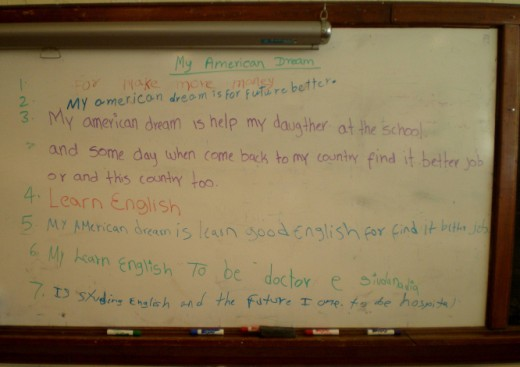 My American Dream
1 For Make more money
2. My american dream is for future better.
3. My american dream is help my daugther at the school
and some day when come back to my country find it better job
or and this country too.
4. Learn English
5 My American dream is learn good English for find it better job
6 My Learn English To be doctor e
7. Is studing English and the future I to be hospital